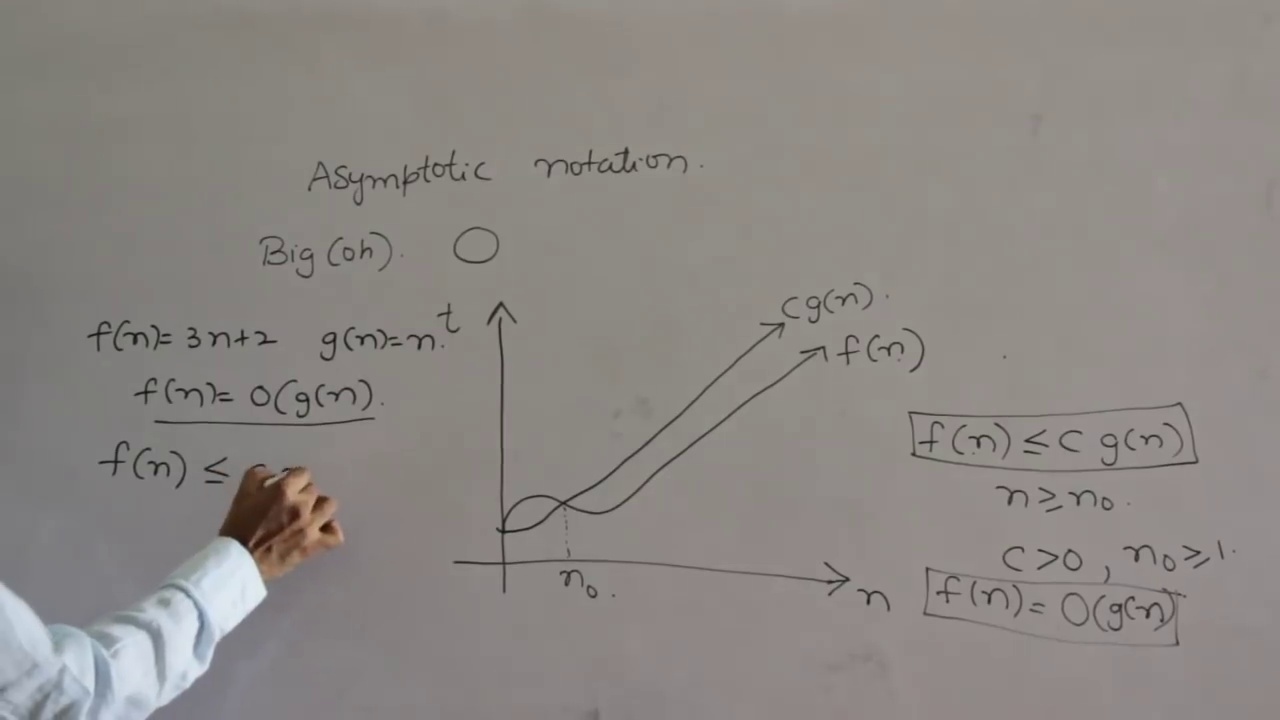 Asymptotic notation.
Big (oh). O
f(n)= 3n+2 g(n)=n.
f(n)= O(g(n).
f(n) ≤ c
t
cg(n).
f(n)
n₀.
n
f(n) ≤ c g(n)
n ≥ n₀.
c>0, n₀ ≥ 1.
f(n) = O(g(n)